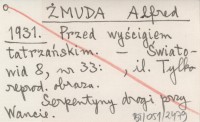 ŻMUDA Alfred
1931. Przed wyścigiem
tatrzańskim. — Świato-
wid 8, nr 33: , il. Tylko
reprod. obraza.
Serpentyny drogi przy
Wancie.